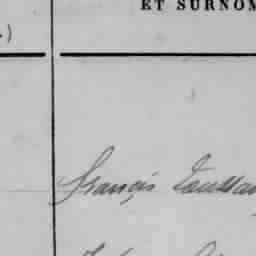 ET SURNOM
.)
françis Toussa